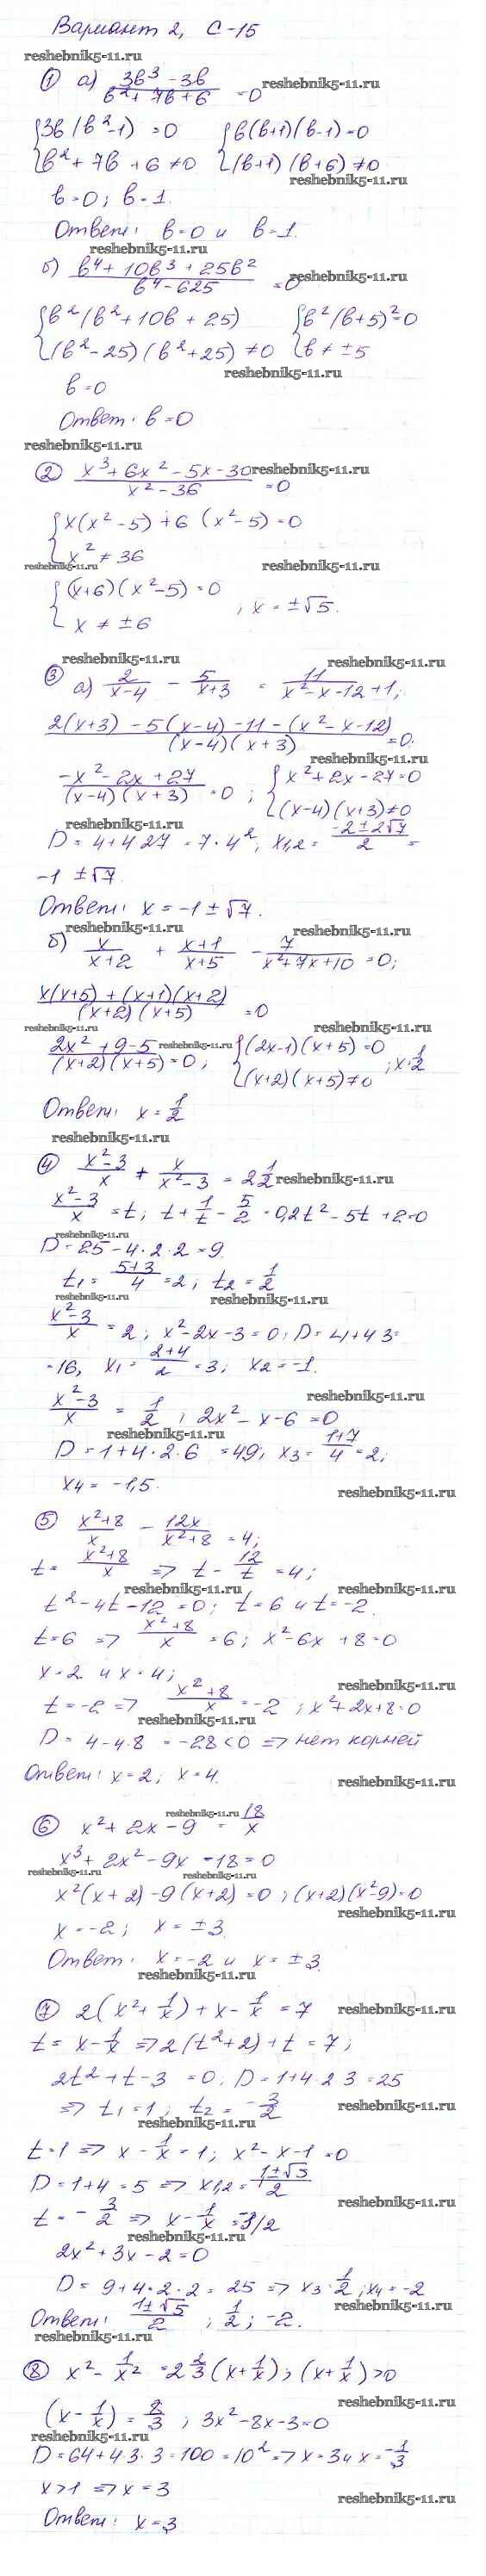 Вариант 2, С-15
reshebnik5-11.ru
① а) 3b³-3b / b²+7b+6 =0
reshebnik5-11.ru
{3b(b²-1) =0 {b(b+1)(b-1)=0
{b²+7b+6≠0 {(b+1)(b+6)≠0
reshebnik5-11.ru
b=0; b=1.
Ответ: b=0 и b=1.
reshebnik5-11.ru
б) b⁴+10b³+25b² / b⁴-625 =0
reshebnik5-11.ru
{b²(b²+10b+25) {b²(b+5)²=0
{(b²-25)(b²+25)≠0 {b≠±5
reshebnik5-11.ru
b=0
Ответ: b=0
reshebnik5-11.ru
② x³+6x²-5x-30 / x²-36 =0
reshebnik5-11.ru
{x(x²-5)+6(x²-5)=0
{x²≠36
reshebnik5-11.ru reshebnik5-11.ru
{(x+6)(x²-5)=0
{x≠±6 ; x=±√5.
reshebnik5-11.ru reshebnik5-11.ru
③ а) 2/x-4 - 5/x+3 = 11/x²-x-12 +1;
2(x+3)-5(x-4)-11-(x²-x-12) / (x-4)(x+3) =0.
reshebnik5-11.ru
-x²-2x+27 / (x-4)(x+3) =0 ; {x²+2x-27=0
{(x-4)(x+3)≠0
reshebnik5-11.ru
D=4+4·27=7·4²; x1,2= -2±2√7 / 2 =
-1±√7.
Ответ: x=-1±√7.
reshebnik5-11.ru reshebnik5-11.ru
б) x/x+2 + x+1/x+5 - 7/x²+7x+10 =0;
x(x+5)+(x+1)(x+2) / (x+2)(x+5) =0
reshebnik5-11.ru reshebnik5-11.ru
2x²+9-5 / (x+2)(x+5) =0; {(2x-1)(x+5)=0
reshebnik5-11.ru
{(x+2)(x+5)≠0 ; x=1/2
Ответ: x=1/2
reshebnik5-11.ru
④ x²-3/x + x/x²-3 = 2 1/2
reshebnik5-11.ru
x²-3/x =t; t+1/t-5/2=0,2t²-5t+2=0
reshebnik5-11.ru
D=25-4·2·2=9.
t1= 5+3/4 =2; t2=1/2
reshebnik5-11.ru reshebnik5-11.ru
x²-3/x =2; x²-2x-3=0; D=4+4·3=
=16, x1= 2+4/2 =3; x2=-1.
x²-3/x = 1/2 ; 2x²-x-6=0
reshebnik5-11.ru
reshebnik5-11.ru
D=1+4·2·6=49; x3= 1+7/4 =2;
x4=-1,5.
reshebnik5-11.ru
⑤ x²+8/x - 12x/x²+8 =4;
t= x²+8/x => t-12/t=4;
reshebnik5-11.ru reshebnik5-11.ru
t²-4t-12=0; t=6 и t=-2.
t=6 => x²+8/x =6; x²-6x+8=0
x=2 и x=4;
reshebnik5-11.ru
t=-2 => x²+8/x =-2 ; x²+2x+8=0
reshebnik5-11.ru
D=4-4·8=-28<0 => нет корней
Ответ: x=2; x=4.
reshebnik5-11.ru
⑥ x²+2x-9 = 18/x
reshebnik5-11.ru
x³+2x²-9x-18=0
reshebnik5-11.ru reshebnik5-11.ru
x²(x+2)-9(x+2)=0; (x+2)(x²-9)=0
reshebnik5-11.ru
x=-2; x=±3.
Ответ: x=-2 и x=±3.
reshebnik5-11.ru
⑦ 2(x²+1/x)+x-1/x=7
reshebnik5-11.ru
t=x-1/x => 2(t²+2)+t=7;
2t²+t-3=0. D=1+4·2·3=25
=> t1=1; t2=-3/2
reshebnik5-11.ru
reshebnik5-11.ru
t=1 => x-1/x=1; x²-x-1=0
D=1+4=5 => x1,2= 1±√5 / 2
reshebnik5-11.ru
t=-3/2 => x-1/x=-3/2
reshebnik5-11.ru
2x²+3x-2=0
D=9+4·2·2=25 => x3=1/2; x4=-2
reshebnik5-11.ru
Ответ: 1±√5 / 2 ; 1/2; -2.
reshebnik5-11.ru
⑧ x²-1/x²=2 2/3(x+1/x); (x+1/x)>0
reshebnik5-11.ru
(x-1/x)=8/3 ; 3x²-8x-3=0
reshebnik5-11.ru
D=64+4·3·3=100=10² => x=3 и x=-1/3
x>1 => x=3
reshebnik5-11.ru
Ответ: x=3